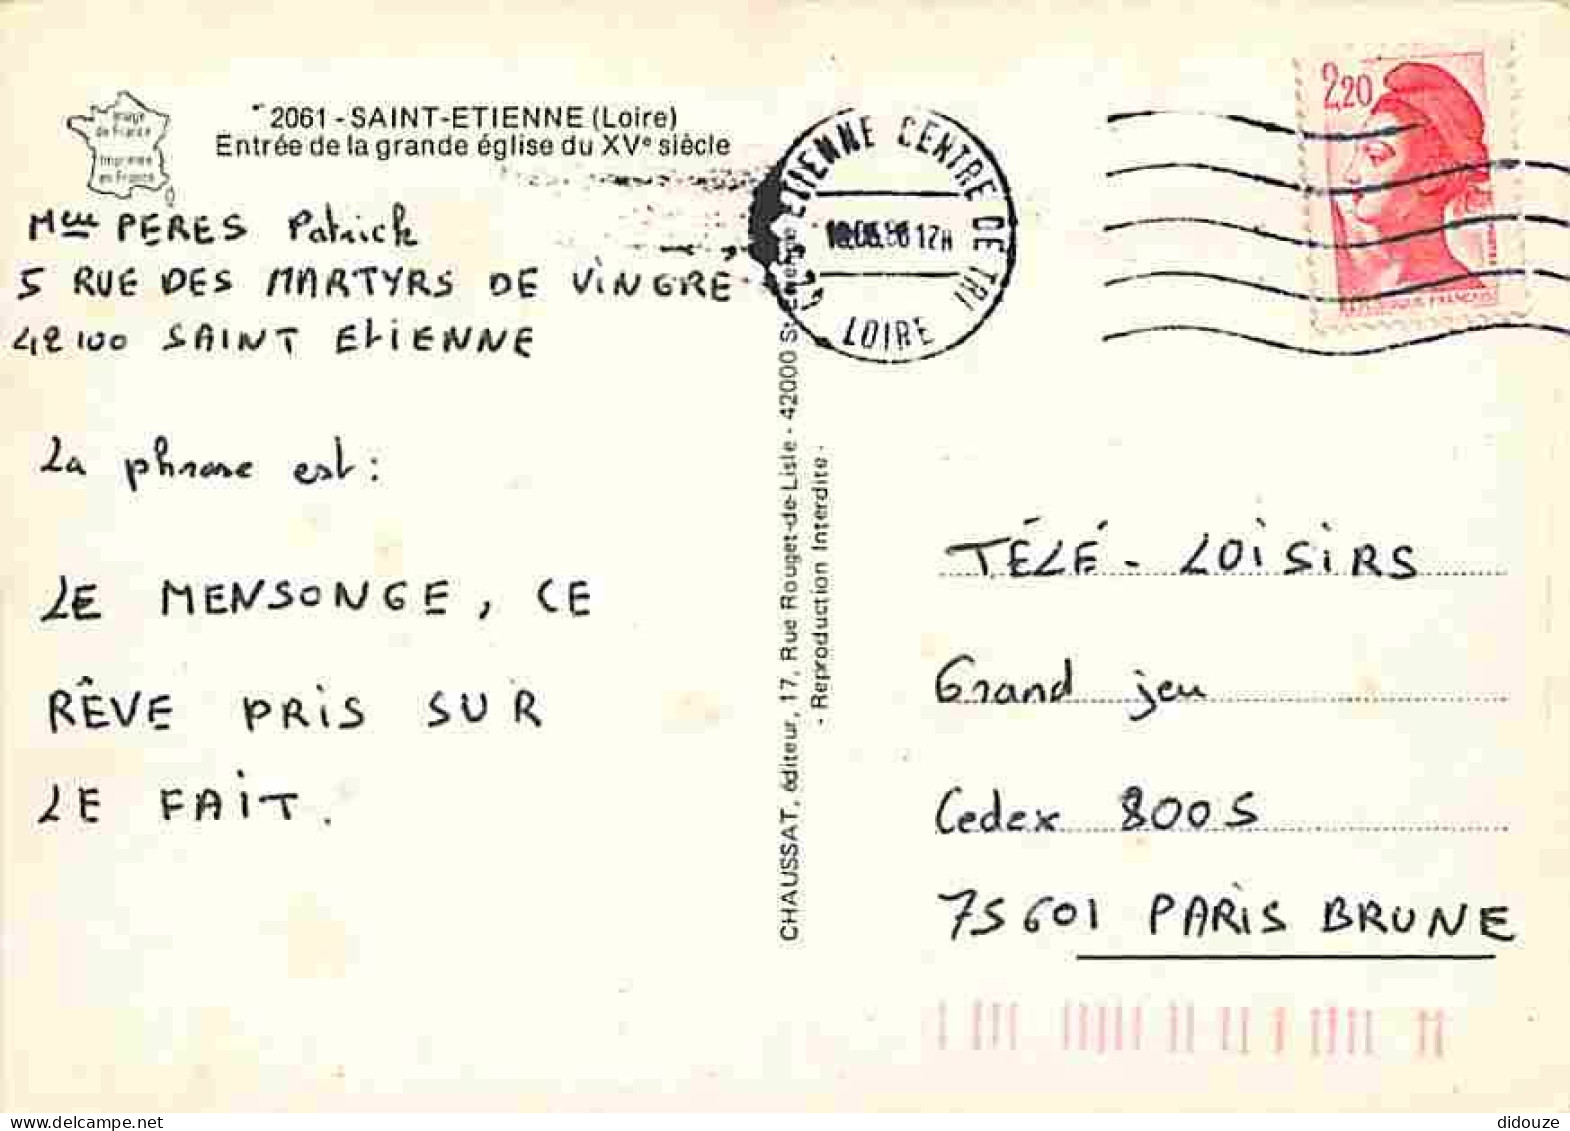 Image
de France
Imprimée
en France
2061 - SAINT-ETIENNE (Loire)
Entrée de la grande église du XVe siècle
Mme PERES Patrick
5 RUE DES MARTYRS DE ViNGRE
42100 SAINT EtiENNE
La phrase est :
LE MENSONGE, CE
RÊVE PRiS SUR
LE FAiT.
CHAUSSAT, éditeur, 17, Rue Rouget-de-Lisle - 42000 St-Etienne
- Reproduction Interdite -
ETIENNE CENTRE DE TRI
86 12H
LOIRE
2,20
REPUBLIQUE FRANÇAISE
TÉLÉ - LOiSiRS
Grand jeu
Cedex 800S
75601 PARiS BRUNE
didouze